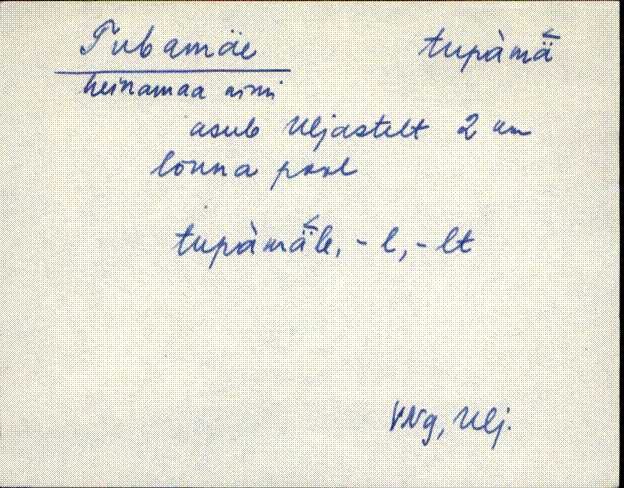 Tubamäe tupàmä̆
heinamaa nimi
asub Uljastelt 2 km
lõuna pool
tupàmä̆le, -l, -lt
VNg, Ulj.